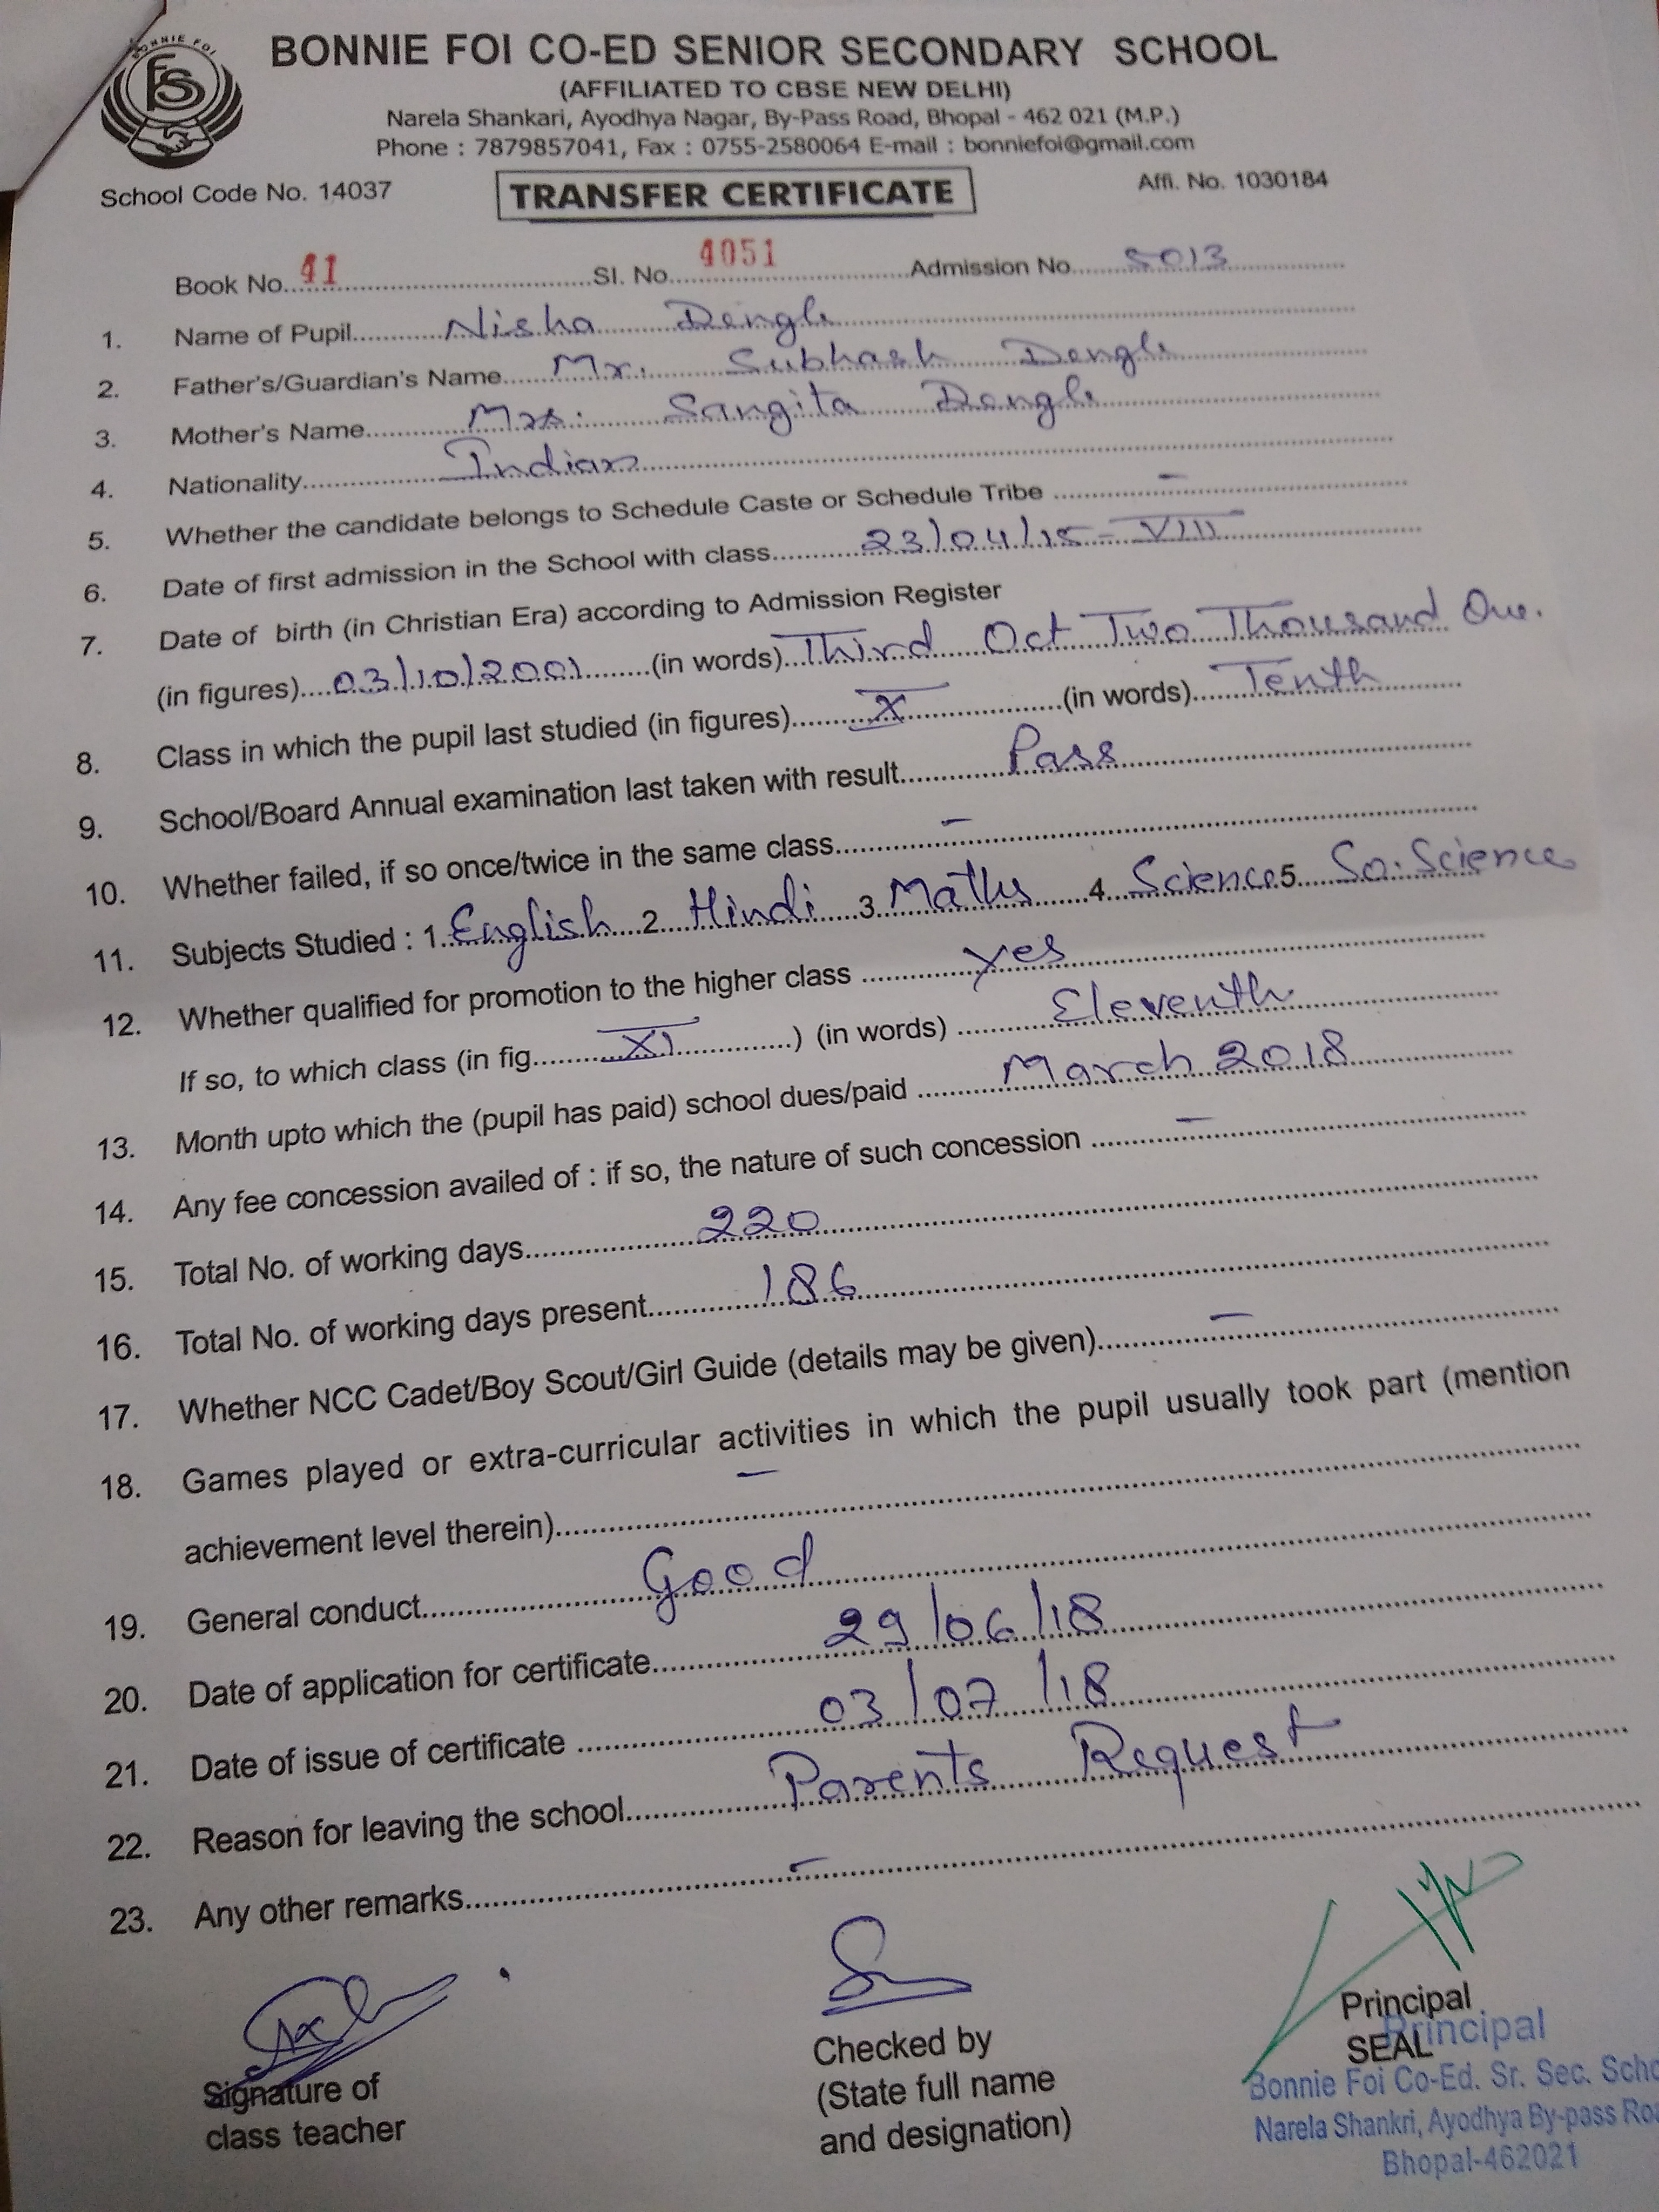 BONNIE FOI
FS
BONNIE FOI CO-ED SENIOR SECONDARY SCHOOL
(AFFILIATED TO CBSE NEW DELHI)
Narela Shankari, Ayodhya Nagar, By-Pass Road, Bhopal - 462 021 (M.P.)
Phone : 7879857041, Fax : 0755-2580064 E-mail : bonniefoi@gmail.com
School Code No. 14037 TRANSFER CERTIFICATE Affi. No. 1030184
Book No. 41 Sl. No. 4051 Admission No. 5013
1. Name of Pupil Nisha Dengle
2. Father's/Guardian's Name Mr. Subhash Dengle
3. Mother's Name Mrs. Sangita Dengle
4. Nationality Indian
5. Whether the candidate belongs to Schedule Caste or Schedule Tribe -
6. Date of first admission in the School with class 23/04/15 - VIII
7. Date of birth (in Christian Era) according to Admission Register
(in figures) 03/10/2001 (in words) Third Oct Two Thousand One.
8. Class in which the pupil last studied (in figures) X (in words) Tenth
9. School/Board Annual examination last taken with result Pass
10. Whether failed, if so once/twice in the same class -
11. Subjects Studied : 1. English 2. Hindi 3. Maths 4. Science 5. So. Science
12. Whether qualified for promotion to the higher class yes
If so, to which class (in fig. XI ) (in words) Eleventh
13. Month upto which the (pupil has paid) school dues/paid March 2018
14. Any fee concession availed of : if so, the nature of such concession -
15. Total No. of working days 220
16. Total No. of working days present 186
17. Whether NCC Cadet/Boy Scout/Girl Guide (details may be given) -
18. Games played or extra-curricular activities in which the pupil usually took part (mention
achievement level therein) -
19. General conduct Good
20. Date of application for certificate 29/06/18
21. Date of issue of certificate 03/07/18
22. Reason for leaving the school Parents Request
23. Any other remarks -
Signature of
class teacher
Checked by
(State full name
and designation)
Principal
SEAL
Principal
Bonnie Foi Co-Ed. Sr. Sec. Scho
Narela Shankri, Ayodhya By-pass Roa
Bhopal-462021